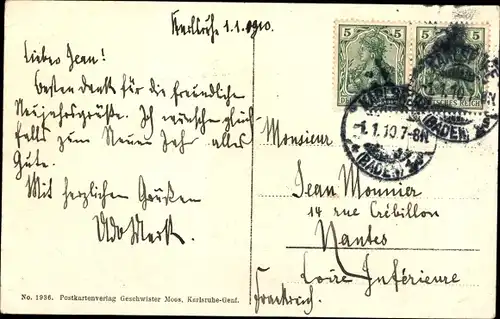 Karlsruhe 1.1.1910.
Lieber Jean!
Besten Dank für die freundlichen
Neujahrsgrüße. Ich wünsche gleich-
falls zum Neuen Jahr alles
Gute.
Mit herzlichen Grüßen
Udo
5 5
5
DEUTSCHES REICH
KARLSRUHE
1.1.10
(BADEN)
1.1.10.7-8N.
(BADEN)
Monsieur
Jean Monnier
14 rue Crébillon
Nantes
Loire Inférieure
Frankreich.
No. 1936. Postkartenverlag Geschwister Moos, Karlsruhe-Genf.